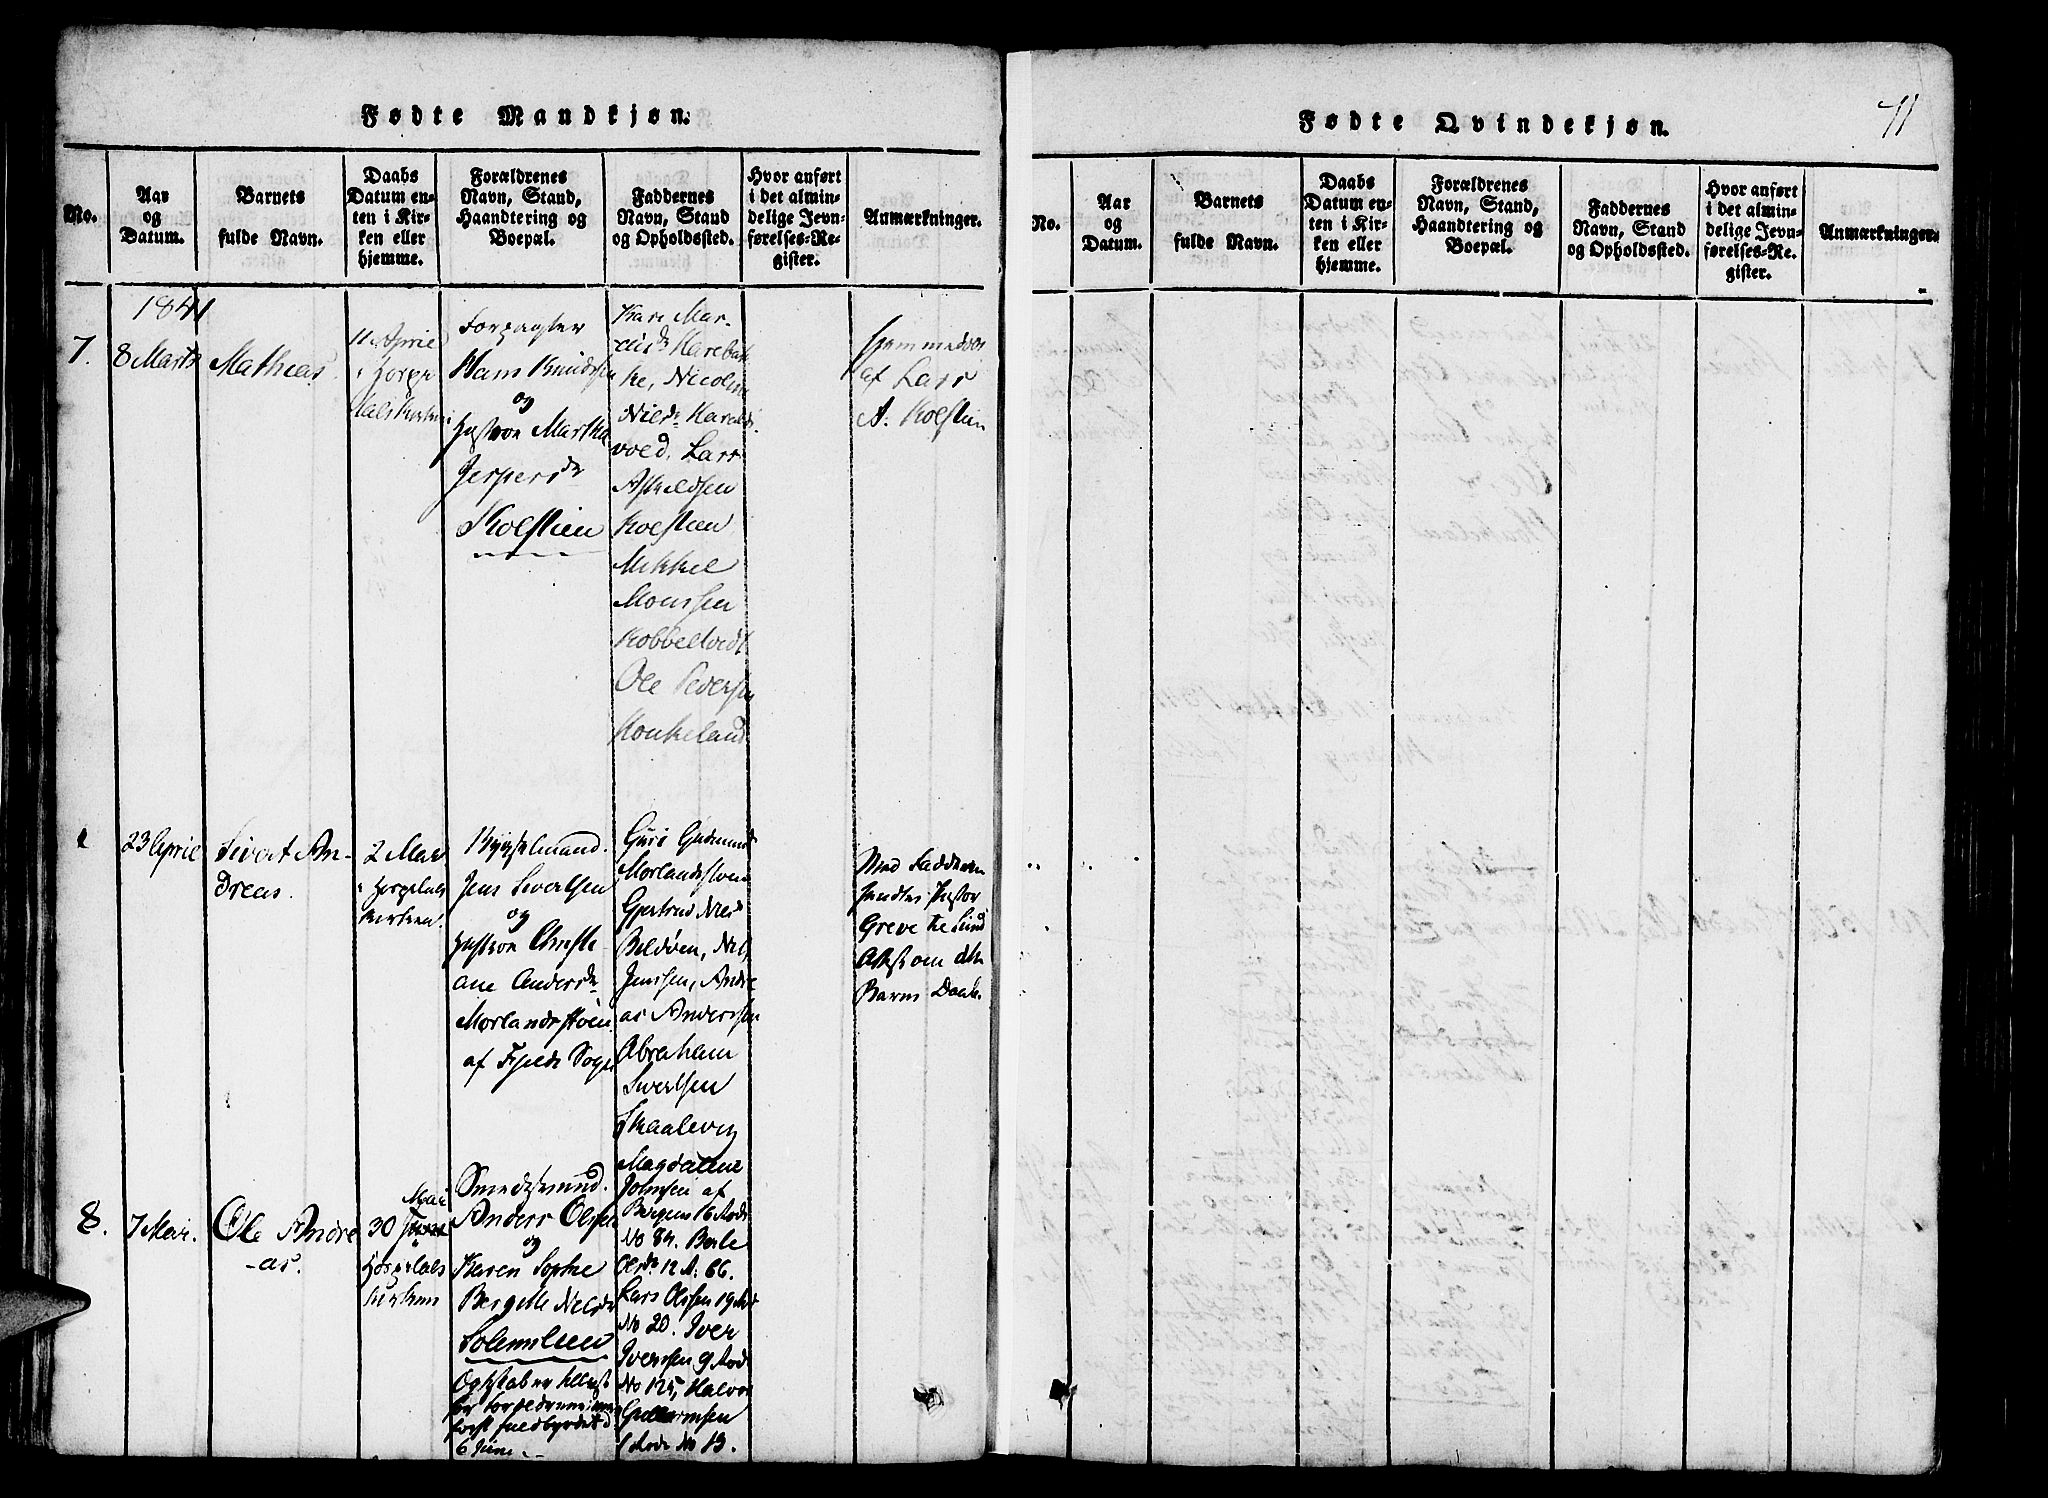 Fødte Mandkjøn.
No.
Aar
og
Datum.
Barnets
fulde Navn.
Daabs
Datum en-
ten i Kir-
ken eller
hjemme.
Forældrenes
Navn, Stand,
Haandtering og
Boepæl.
Faddernes
Navn, Stand
og Opholdssted.
Hvor anført
i det almin-
delige Jevn-
førelses-Re-
gister.
Anmærkninger.
1841
7.
8 Marts
Mathias
11 April
i Horge
Hans Knudsen
og
Hustroe Martha
Jespersdr
Kolstien
Kari Mar-
Nielsdr Haralds-
voed, Lars
Askeldsen
Kolstien
Mikkel
Monssen
Kobbeltvedt
Ole Pedersen
Konkeland
Hjemmedøbt
af Lars
A. Kolstien
23 April
Sivert An-
dreas.
2 Mai
i Horgelads
Kirken.
Jens Sivertsen
og
Hustroe Christi-
ane Andersdr
Morlandsstøen
af Fjelds Sogn
Guro Gudmunds
Morlandsstøen
Gjertrud Niels
Bildøen, Nils
Jenssen, Andre
as Anderssen
Abraham
Sivertsen
Skaalevig
Med Fadderne
sendtes Pastor
Greve til Sund
Attest om dette
Barns Daab.
8.
7 Mai.
Ole Andre
-as.
Mai
30 Juni
Horgelads
Kirken
Smedsvend.
Anders Olsen
og
Karen Sophie
Bergitte Nielsdr
Solemslien
6 Juni.
Magdalene
Johnsen af
Bergens 16 Rode
No 84. Berle
Olsdr 12 R. 66.
Lars Olssen 19 Rode
No 20. Iver
Iverssen 9 Rode
No 125, Halvor
Guttormsen
1 Rode No 13.
Fødte Qvindekjøn.
71
No.
Aar
og
Datum.
Barnets
fulde Navn.
Daabs
Datum en-
ten i Kir-
ken eller
hjemme.
Forældrenes
Navn, Stand,
Haandtering og
Boepæl.
Faddernes
Navn, Stand
og Opholdssted.
Hvor anført
i det almin-
delige Jevn-
førelses-Re-
gister.
Anmærkninger.